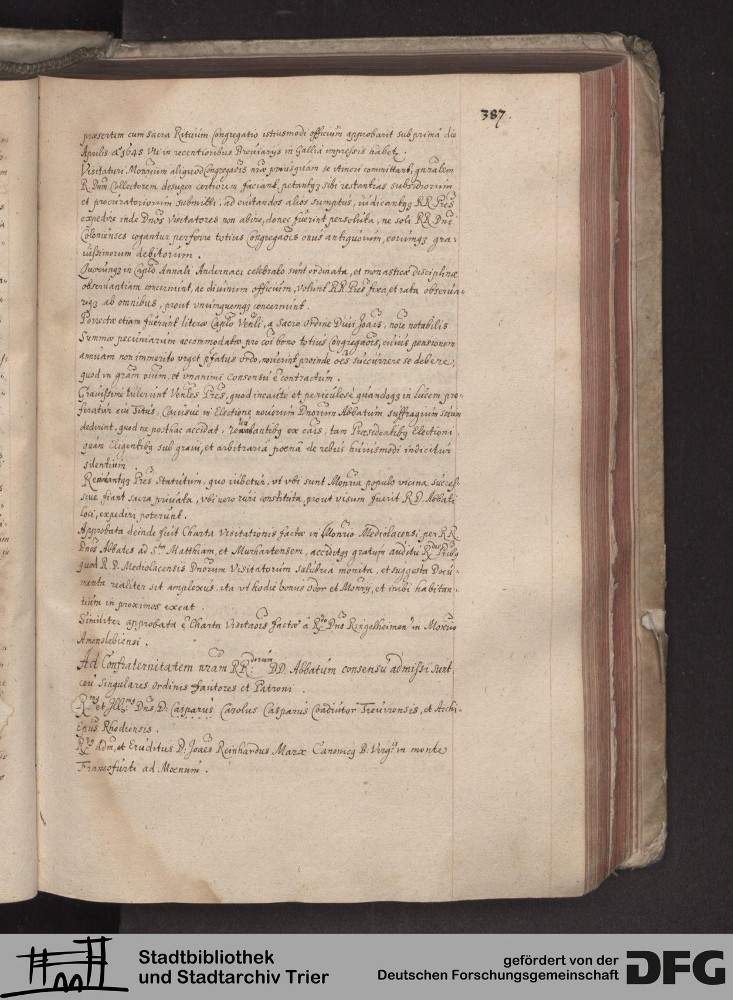 387.
præsertim cum Sacra Rituum Congregatio istiusmodi officium approbarit sub prima die
Aprilis aº 1645 Uti in recentioribus Breviarys in Gallia impressis habet.
Visitaturi Monrium aliquod Congregaõis nræ priusquam se itineri committant, gnralem
R. Dnm Collectorem desuper certiorem faciant, petantq; sibi restantias subsidiorum
et procuratoriorum submitti, ad evitandos alios sumptus, iudicantq; RR. Pres
expedire inde Dnos Visitatores non abire, donec fuerint persoluta, ne soli RR. Dni
Colonienses cogantur perferre totius Congregaõis onus antiquorum, eorumq; gra-
vissimorum debitorum.
Quæcunq; in Caplo Annali Andernaci celebrato sunt ordinata, et monasticæ disciplinæ
observantiam concernunt, ac divinum officium, volunt RR. Pres fixa, et rata observa-
riq; ab omnibus, prout unumquemq; concernunt.
Porrectæ etiam fuerunt literæ Caplo Venli, a Sacro Ordine Divi Joãis, noie notabilis
Summæ pecuniarum accommodatæ pro coi bono totius Congregaõis, cuius pensionem
annuam non immerito urget pfatus ordo, noverint proinde oes succurrere se debere,
quod in gram eium, et unanimi consensu e contractum.
Gravissime tulerunt Venles Pres, quod incaute et periculose quandoq; in lucem pro-
feratur cui Situs, Cuiusve in Electione novorum Dnorum Abbatum suffragium suum
dederint, quod ne posthac accidat, tam Præsidentibq Electioni
quam Eligentibq sub gravi, et arbitraria pœna de rebus huiusmodi indicitur
silentium.
Renovantq; Pres Statutum, quo iubetur, ut ubi sunt Monria populo vicina succes-
sive fiant sacra privata, ubi vero ruri constituta, prout visum fuerit R. D. Abbati
loci, expediri poterunt.
Approbata deinde fuit Charta Visitationis factæ in Monrio Mediolacensi, per RR.
Dnos Abbates ad Stm Matthiam, et Murhartensem, acciditq; gratum auditu Rdis Pribq
quod R. D. Mediolacensis Dnorum Visitatorum salubria monita, et suggesta Docu-
menta realiter sit amplexus, ita ut hodie bonus odor et Monry, et inibi habitan-
tium in proximos exeat.
Similiter approbata e Charta Visitaõis factæ a Rdo Dno Ringelheimens in Monrio
Amenslebiensi.
Ad Confraternitatem nram RR.dorum DD. Abbatum consensu admissi sunt
ceu Singulares Ordinis fautores et Patroni.
Rmus et Illmus Dns D. Casparus Carolus Casparus Coadiutor Trevirensis, et Archi-
Epus Rhodiensis.
Rdo adm, et Eruditus D. Joaes Reinhardus Marx Canonicq B. Virg. in monte
Francofurti ad Moenum.
Stadtbibliothek
und Stadtarchiv Trier
gefördert von der
Deutschen Forschungsgemeinschaft
DFG